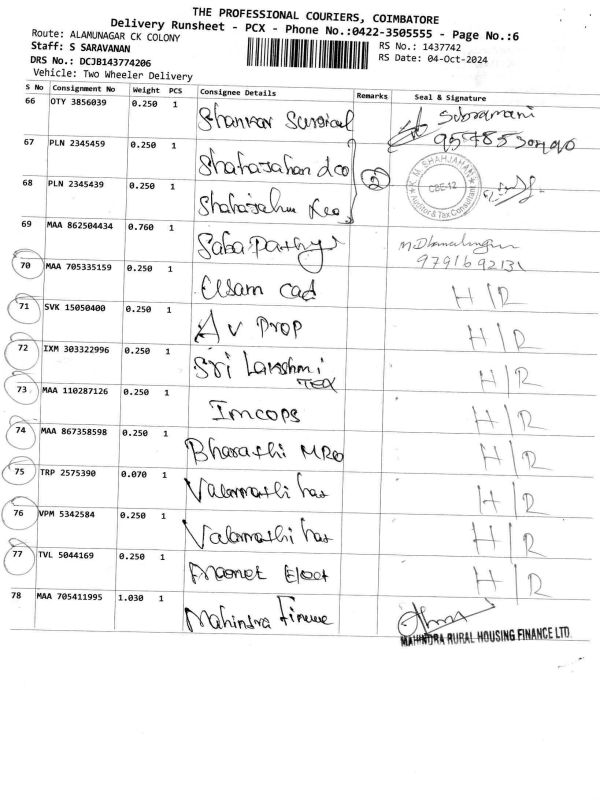 THE PROFESSIONAL COURIERS, COIMBATORE
Delivery Runsheet - PCX - Phone No.:0422-3505555 - Page No.:6
Route: ALAMUNAGAR CK COLONY RS No.: 1437742
Staff: S SARAVANAN RS Date: 04-Oct-2024
DRS No.: DCJB143774206
Vehicle: Two Wheeler Delivery
S No Consignment No Weight PCS Consignee Details Remarks Seal & Signature
66 OTY 3856039 0.250 1 Shankar Surgical Subramani
67 PLN 2345459 0.250 1 Shahajahan &co
2 K.M. SHAHJAHAN CBE-12 Auditor & Tax Consultant
68 PLN 2345439 0.250 1 Shahajahn &co
69 MAA 862504434 0.760 1 Saba pathy
9791692131
70 MAA 705335159 0.250 1 Elsam cad H/R
71 SVK 15050400 0.250 1 A V Prop H/R
72 IXM 303322996 0.250 1 Sri Lakshmi Tex H/R
73 MAA 110287126 0.250 1 Imcops H/R
74 MAA 867358598 0.250 1 Bharathi MRO H/R
75 TRP 2575390 0.070 1 Valarmathi has H/R
76 VPM 5342584 0.250 1 Valarmathi has H/R
77 TVL 5044169 0.250 1 Magnet Elect H/R
78 MAA 705411995 1.030 1 Mahindra Finance
MAHINDRA RURAL HOUSING FINANCE LTD